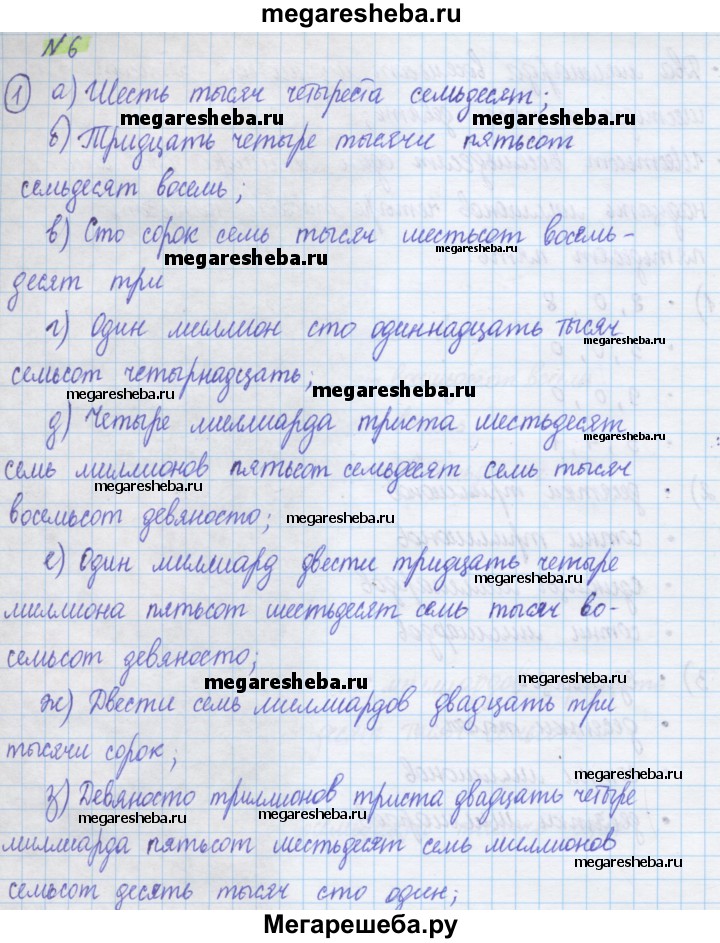 megaresheba.ru
№6
1) а) Шесть тысяч четыреста семьдесят;
megaresheba.ru megaresheba.ru
б) Тридцать четыре тысячи пятьсот
семьдесят восемь;
в) Сто сорок семь тысяч шестьсот восемь-
megaresheba.ru megaresheba.ru
десят три
г) Один миллион сто одиннадцать тысяч
megaresheba.ru
семьсот четырнадцать;
megaresheba.ru megaresheba.ru
д) Четыре миллиарда триста шестьдесят
megaresheba.ru
семь миллионов пятьсот семьдесят семь тысяч
megaresheba.ru
восемьсот девяносто; megaresheba.ru
е) Один миллиард двести тридцать четыре
megaresheba.ru
миллиона пятьсот шестьдесят семь тысяч во-
семьсот девяносто;
megaresheba.ru megaresheba.ru
ж) Двести семь миллиардов двадцать три
тысячи сорок;
megaresheba.ru
з) Девяносто триллионов триста двадцать четыре
megaresheba.ru megaresheba.ru
миллиарда пятьсот шестьдесят семь миллионов
megaresheba.ru
семьсот десять тысяч сто один;
Мегарешеба.ру